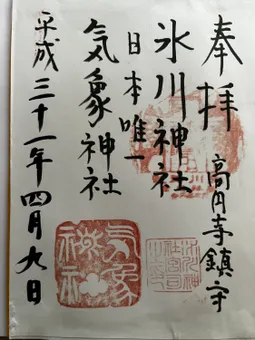 奉拝
高円寺鎮守
氷川神社
日本唯一
気象神社
平成三十一年四月九日
気象
神社